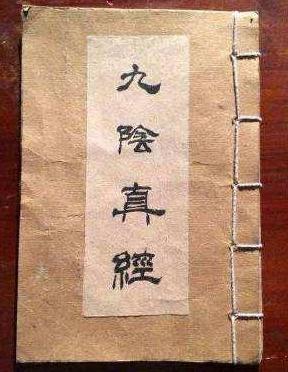 九陰真經